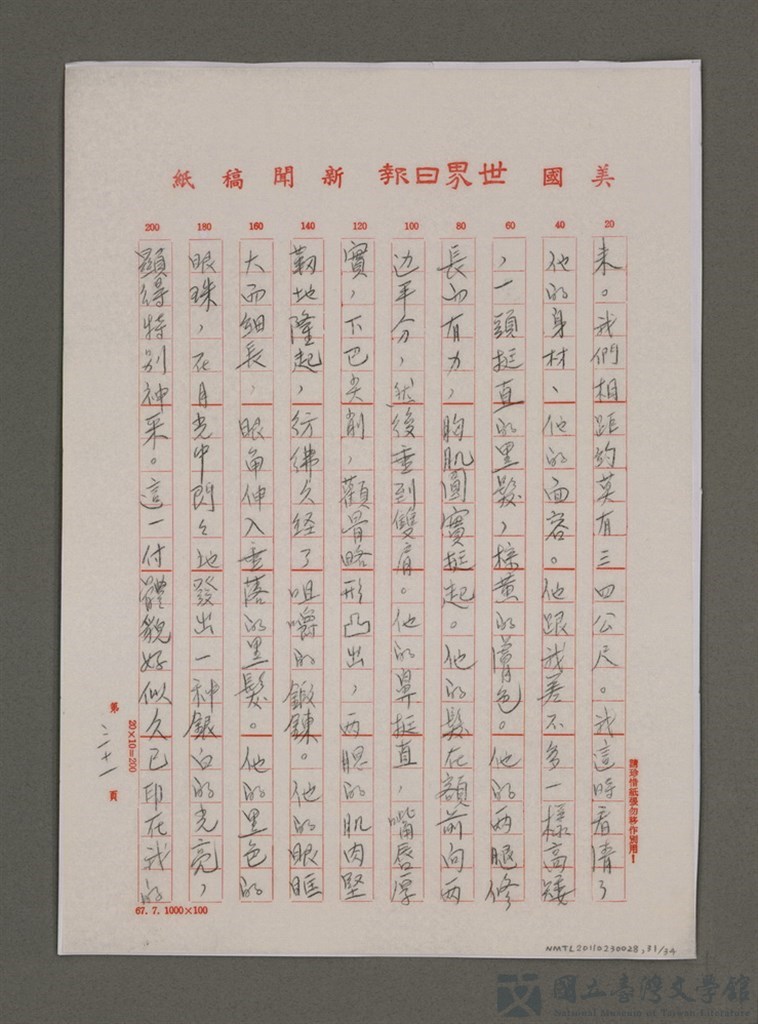 美國世界日報新聞稿紙
20 40 60 80 100 120 140 160 180 200
來。我們相距約莫有三四公尺。我這時看清了
他的身材、他的面容。他跟我差不多一樣高矮
，一頭挺直的黑髮，棕黃的膚色。他的两腿修
長而有力，胸肌圓實挺起。他的髮在額前向两
边平分，然後垂到雙肩。他的鼻挺直，嘴唇厚
實，下巴尖削，顴骨略形凸出，两腮的肌肉堅
韌地隆起，彷彿久经了咀嚼的鍛鍊。他的眼眶
大而細長，眼角伸入垂落的黑髮。他的黑色的
眼珠，在月光中閃々地發出一种銀白的光亮，
顯得特别神采。這一付體貌好似久已印在我的
第 三十一 頁
20×10=200
請珍惜紙張勿移作別用！
67. 7. 1000×100
NMTL20110230028, 31/34
國立臺灣文學館
National Museum of Taiwan Literature